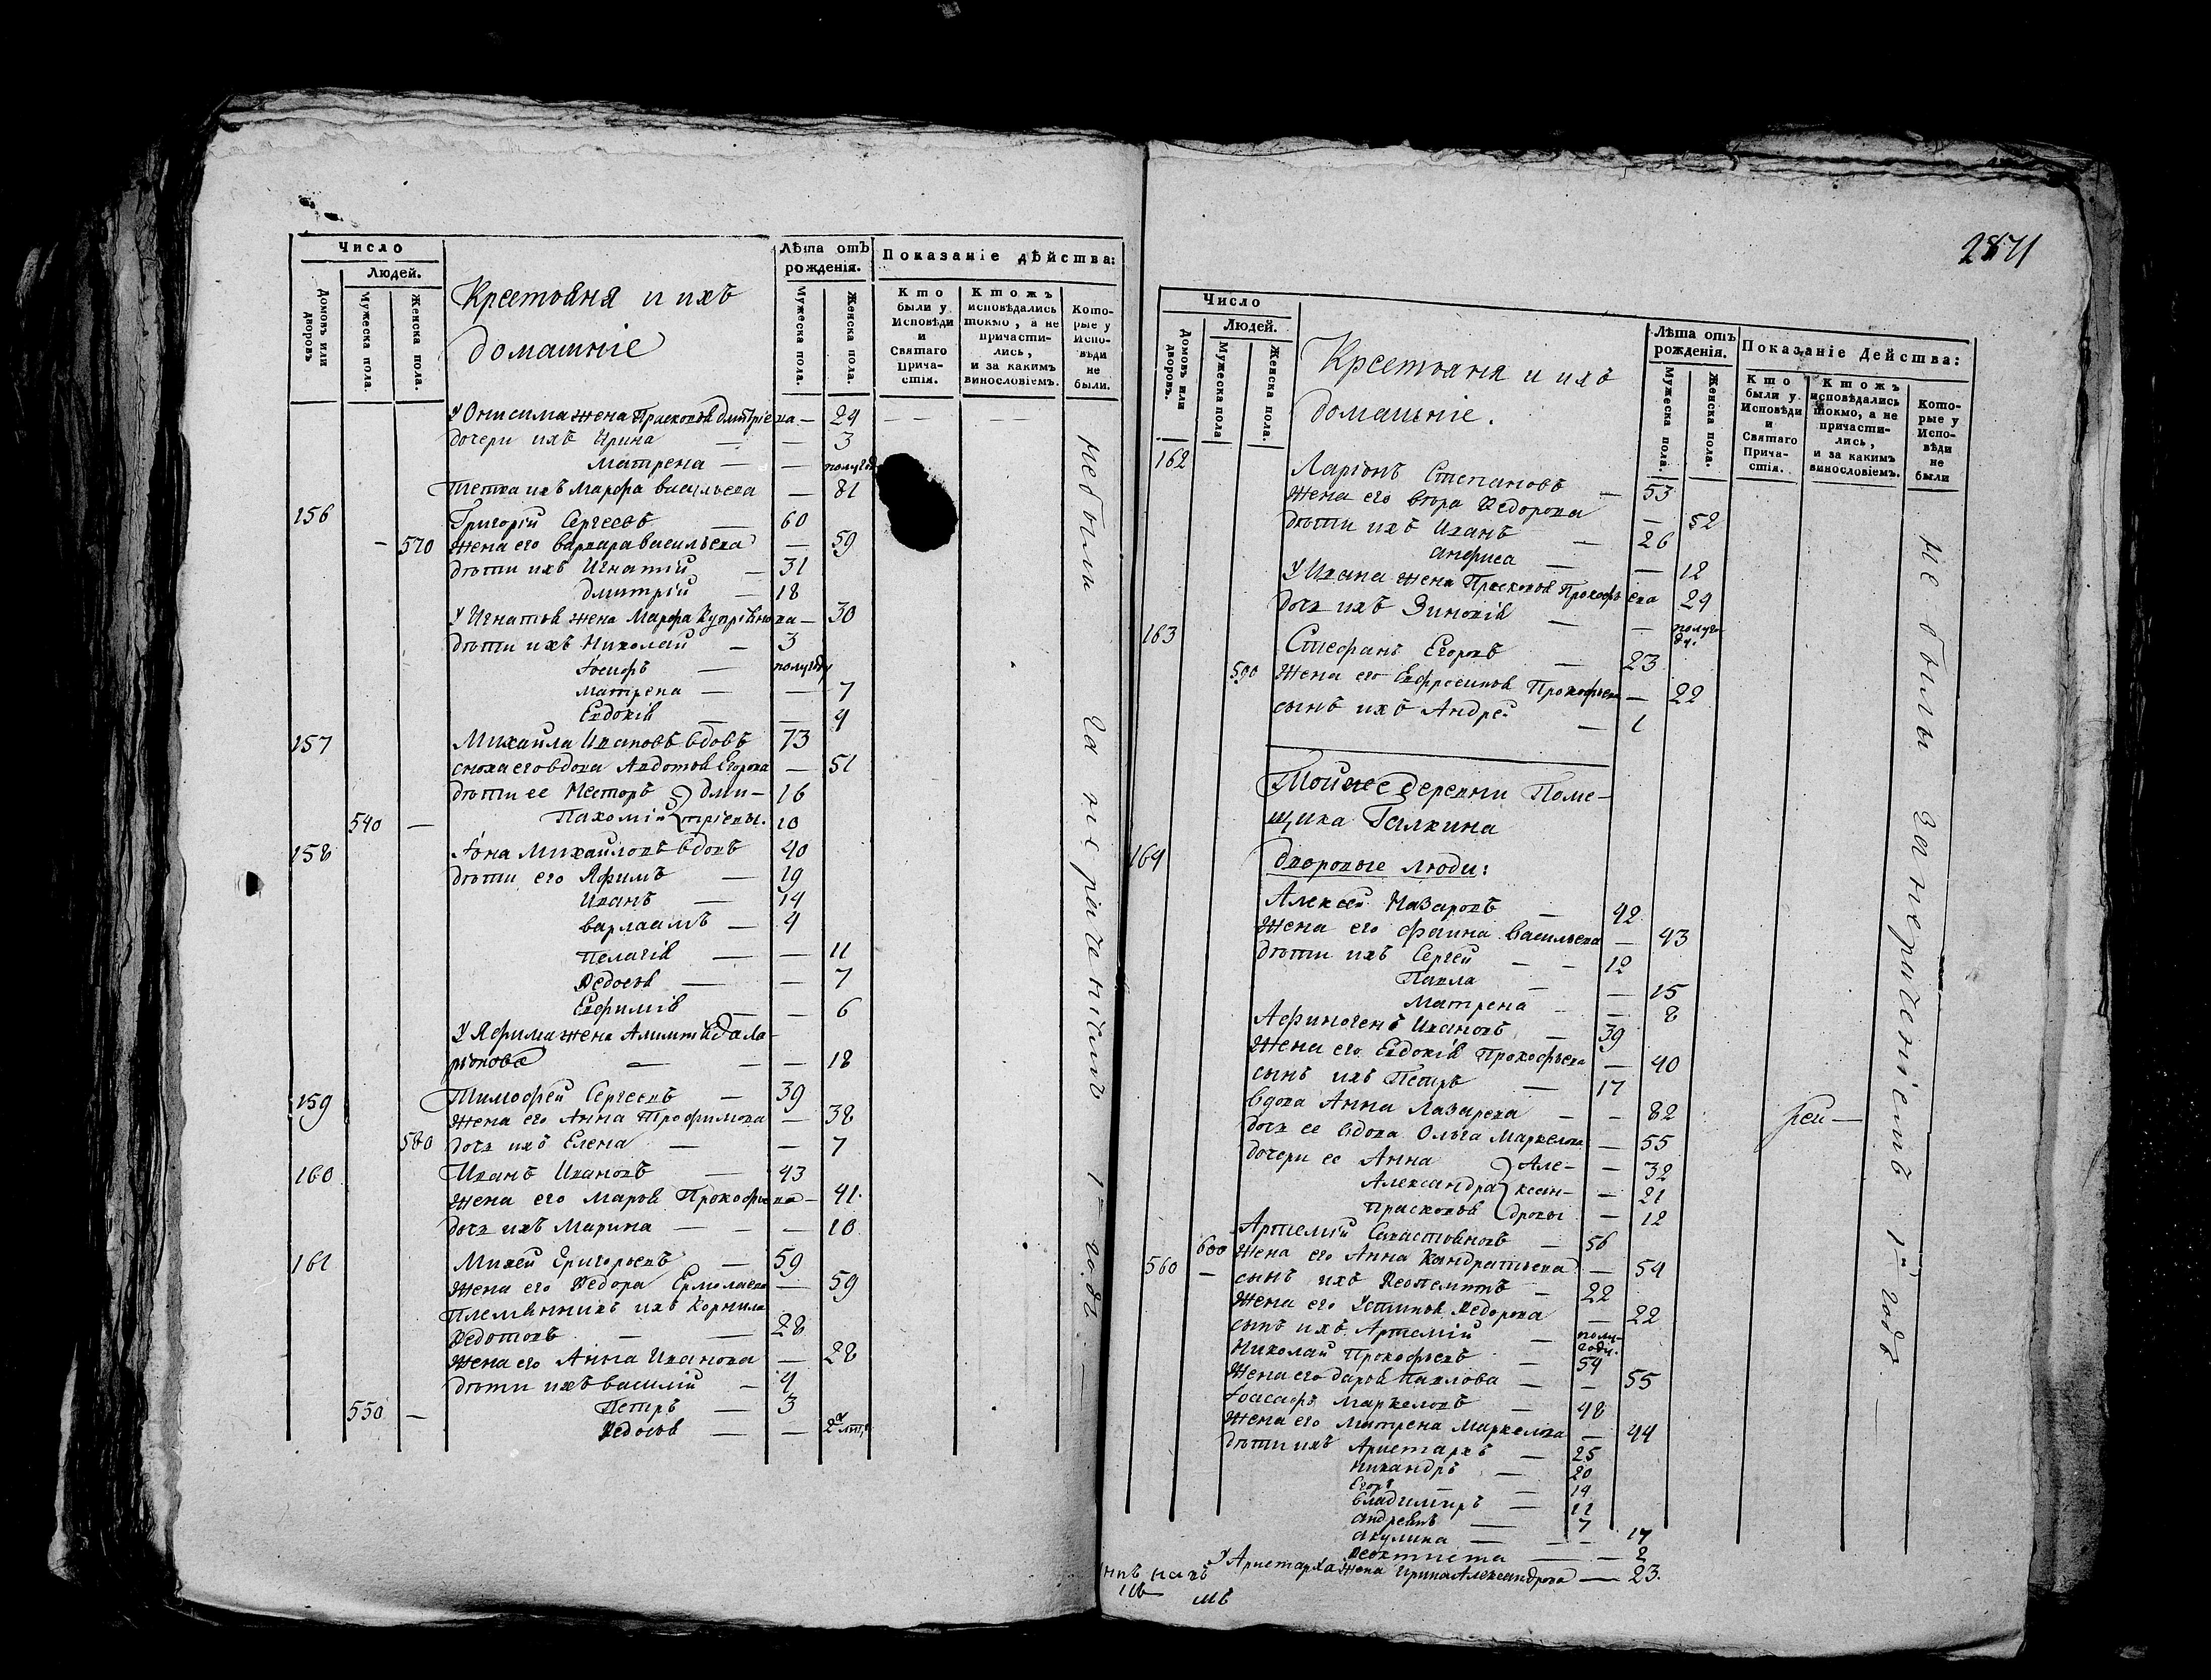 Число
Людей.
Домовъ или дворовъ.
Мужеска пола.
Женска пола.
Крестьяня и ихъ
домашніе
Лѣта отъ рожденія.
Мужеска пола.
Женска пола.
Показаніе дѣйства:
Кто были у Исповѣди и Святаго Причастія.
Ктожъ исповѣдались токмо, а не причастились, и за какимъ винословіемъ.
Которые у Исповѣди не были.
У Онисима жена Прасковья Дмитріева — 24
дочери ихъ Ирина — 3
Матрена — — полугоду
Тетка ихъ Марфа Васильева — 81
156 Григорій Сергеевъ — 60
— 570 жена его Варвара Васильева — 59
дѣти ихъ Игнатій — 31
Дмитрій — 18
У Игнатья жена Марфа Купріянова — 30
дѣти ихъ Николай — 3
Іосифъ — полугоду
Матрена — — 7
Евдокія — — 4
157 Михайла Ивановъ вдовъ 73
сноха его вдова Авдотья Егорова — 51
дѣти ее Несторъ } Дми- 16
540 — Пахомій } тріевы. 10
158 Іона Михайловъ вдовъ 40
дѣти его Яфимъ — 19
Иванъ — 14
Варлаамъ — 4
Пелагія — — 11
Ѳедосья — — 7
Евфимія — — 6
У Яфима жена Алимпіяда Ла-
ріонова — — — 18
159 Тимофей Сергеевъ — 39
жена его Анна Трофимова — 38
580 дочь ихъ Елена — — 7
160 Иванъ Ивановъ — 43
жена его Марья Прокофьева — 41.
дочь ихъ Марина — — — 10
161 Михей Григорьевъ — 59
жена его Ѳедора Ермолаева — 59
племянникъ ихъ Корнила
Ѳедотовъ — — 28
жена его Анна Иванова — 28
дѣти ихъ Василій — 4
550 — Петръ — 3
Ѳедосья — — 2 лѣтъ
не были за нераченіемъ 1й годъ. —
2871
Число
Людей.
Домовъ или дворовъ.
Мужеска пола
Женска пола.
Крестьяня и ихъ
домашніе.
Лѣта отъ рожденія.
Мужеска пола.
Женска пола.
Показаніе Действа:
Кто были у Исповѣди и Святаго Причастія.
Ктожъ исповѣдались токмо, а не причастились, и за какимъ винословіемъ.
Которые у Исповѣди не были
162 Ларіонъ Степановъ — 53
Жена его Ѳедорова — 52
дѣти ихъ Иванъ — 26
Анфиса — — 12
У Ивана жена Прасковья Прокофьева 24
дочь ихъ Зиновія — — полугоду.
163 Стефанъ Егоровъ — 23
590 Жена его Евфросинья Прокофьева — 22
сынъ ихъ Андрей — 1
Той же деревни Поме-
щика Галкина
164 дворовые люди:
Алексей Назаровъ — 42
жена его Фаина Васильева — 43
дѣти ихъ Сергей — — 12
Павла — — 15
Матрена — — 8
Афиногенъ Ивановъ — 39
Жена его Евдокія Прокофьева — 40
сынъ ихъ Петръ — 17
вдова Анна Лазарева — — 82
дочь ее вдова Ольга Маркелова — 55
дочери ее Анна } Але- — 32
Александра } ксан- — 21
Прасковья } дровы — 12
Артемій Савастьяновъ — 56
600 Жена его Анна Кандратьева — 54
560 — сынъ ихъ Ѳеопемптъ — 22
Жена его Устинья Ѳедорова — 22
сынъ ихъ Артемій — полу-
году.
Николай Прокофьевъ — 54
Жена его Дарья Павлова — — 55
Іоасафъ Маркеловъ — 48
Жена его Матрена Маркелова — 44
дѣти ихъ Аристархъ — 25
Никандръ — 20
Егоръ — — 14
Владимиръ — 11
Андреянъ — 7
Акулина — — — 17
Ѳеоктиста — — 2
У Аристарха жена Ирина Александрова — 23.
не были за нераченіемъ 1й годъ. —